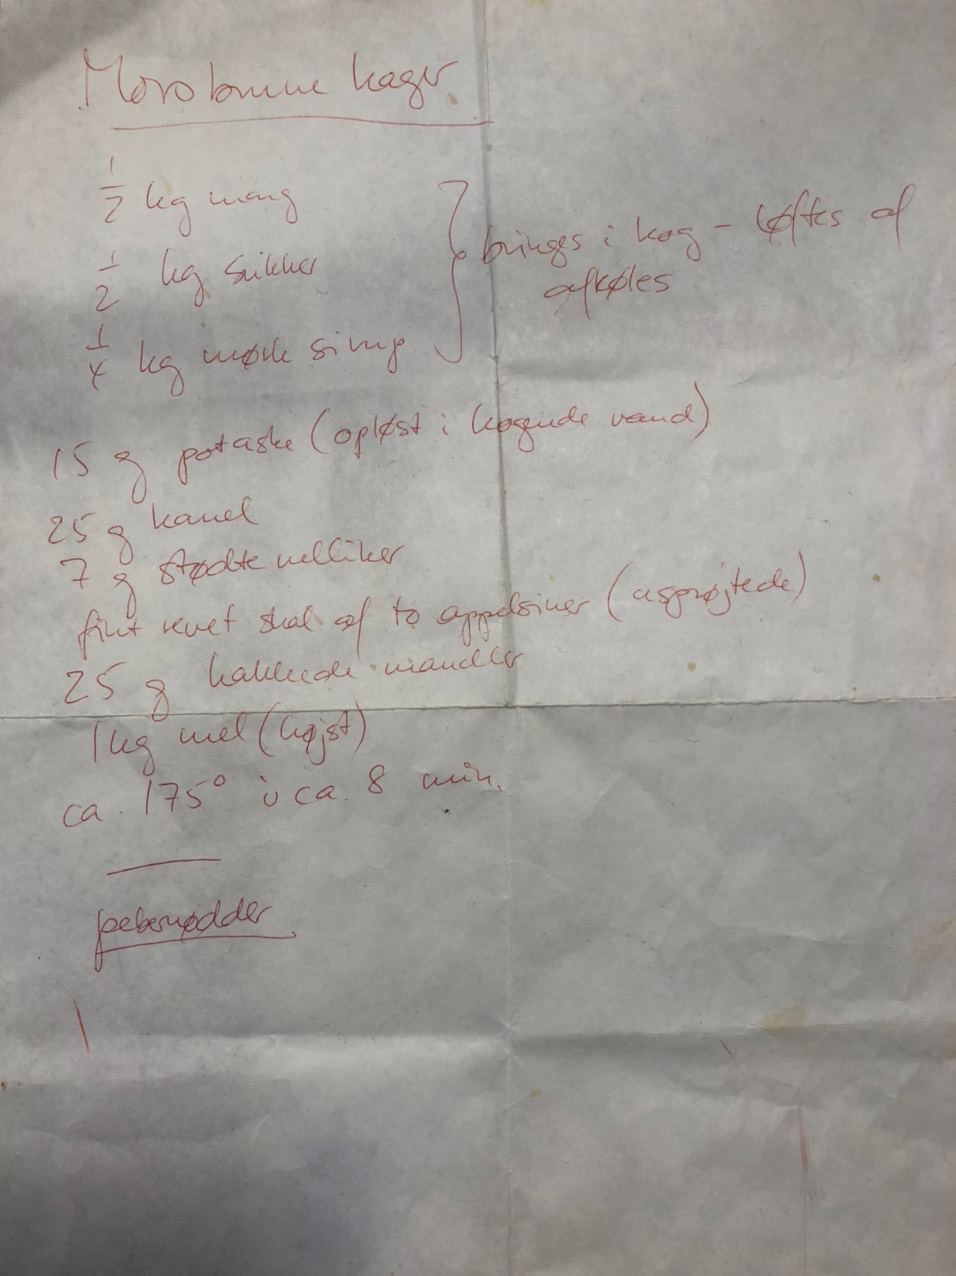 Mors brune kager
1/2 kg marg
1/2 kg sukker
1/4 kg mørk sirup
} bringes i kog - løftes af
afkøles
15 g potaske (opløst i kogende vand)
25 g kanel
7 g stødte nelliker
fint revet skal af to appelsiner (usprøjtede)
25 g hakkede mandler
1 kg mel (højst)
ca. 175° i ca. 8 min.
pebernødder